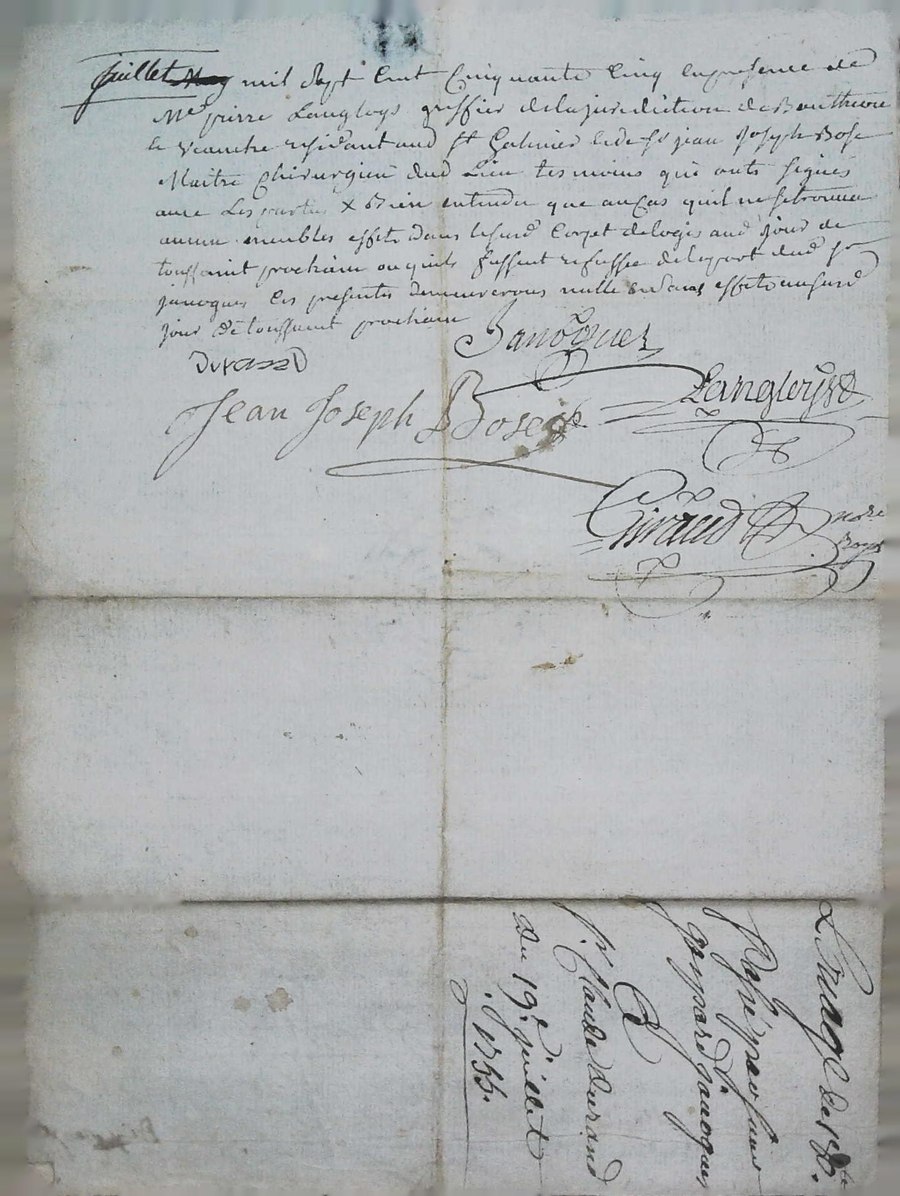 juillet mil sept Cent Cinquante Cinq en presence de
Me pierre Langloys greffier de la jurediction de Bouthreon
le Veauche residant aud St Galmier & de Sr jean Joseph Bose
Maitre Chirurgien dud Lieu tesmoins qui onts signés
avec Les parties X Bien entendu que au Cas quil ne se trouva
aucun meubles effets dans lesusd Corps de logis aud jour de
toussaint prochain ou quils fussent refussé de la part dud Sr
janoques Ces presentes demeurerons nulle & sans effets au susd
jour de toussaint prochain
Durand
Janoques
Langloys
Jean Joseph Bose
Giraud
nore
Royal
de 180
Passé par sieur
gaspard janoques
A
Sr Claude Durand
Du 19e juillet
1755.